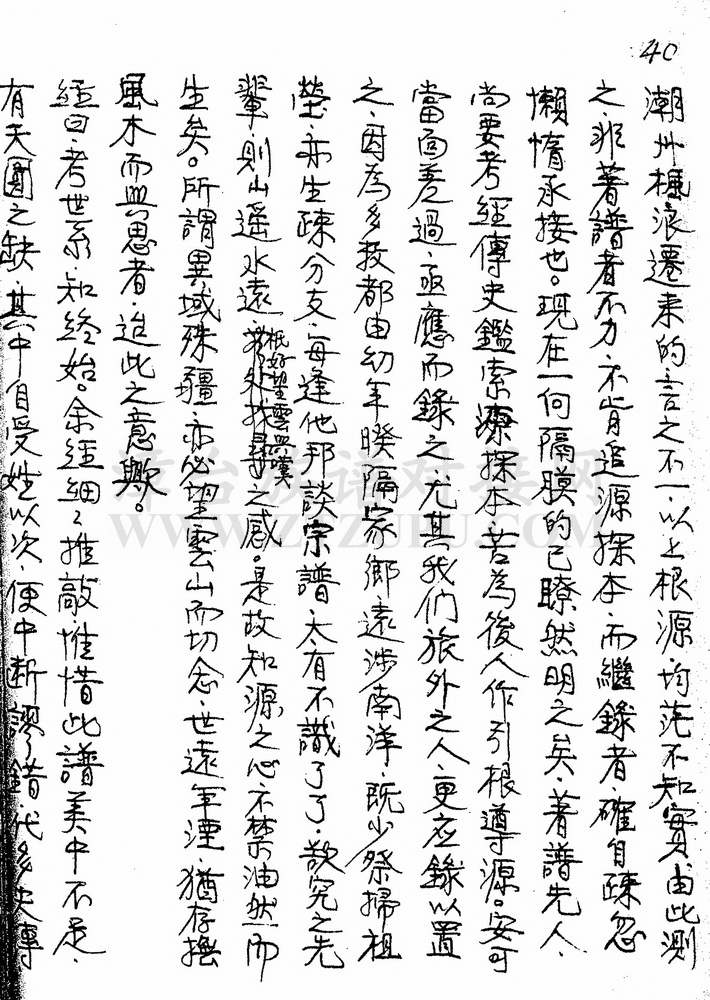 40
潮州楓浪遷來的言之不一．以上根源．均茫不知實．由此測
之．非著譜者不力．不肯追源探本．而繼錄者．確自疎忽
懶惰承接也。現在一向隔膜的已瞭然明之矣．著譜先人．
尚要考經傳史鑑索源探本．苦為後人作引根導源。安可
當面差過．亟應而錄之．尤其我们旅外之人．更应錄以置
之．因為多数都由幼年睽隔家鄉．遠涉南洋．既少祭掃祖
塋．亦生疎分支．每逢他邦談宗譜．太有不識了了．欲究之先
輩．則山遥水遠．祇好望雲興嘆．若外探尋之感。是故知源之心．不禁油然而
生矣。所謂異域殊疆．亦必望雲山而切念．世遠年湮．猶存撫
風木而興思者．迨此之意歟。
經曰．考世系．知終始。余經細々推敲．惟惜此譜美中不足．
有天圓之缺．其中自受姓以次．便中断謬錯代多失專